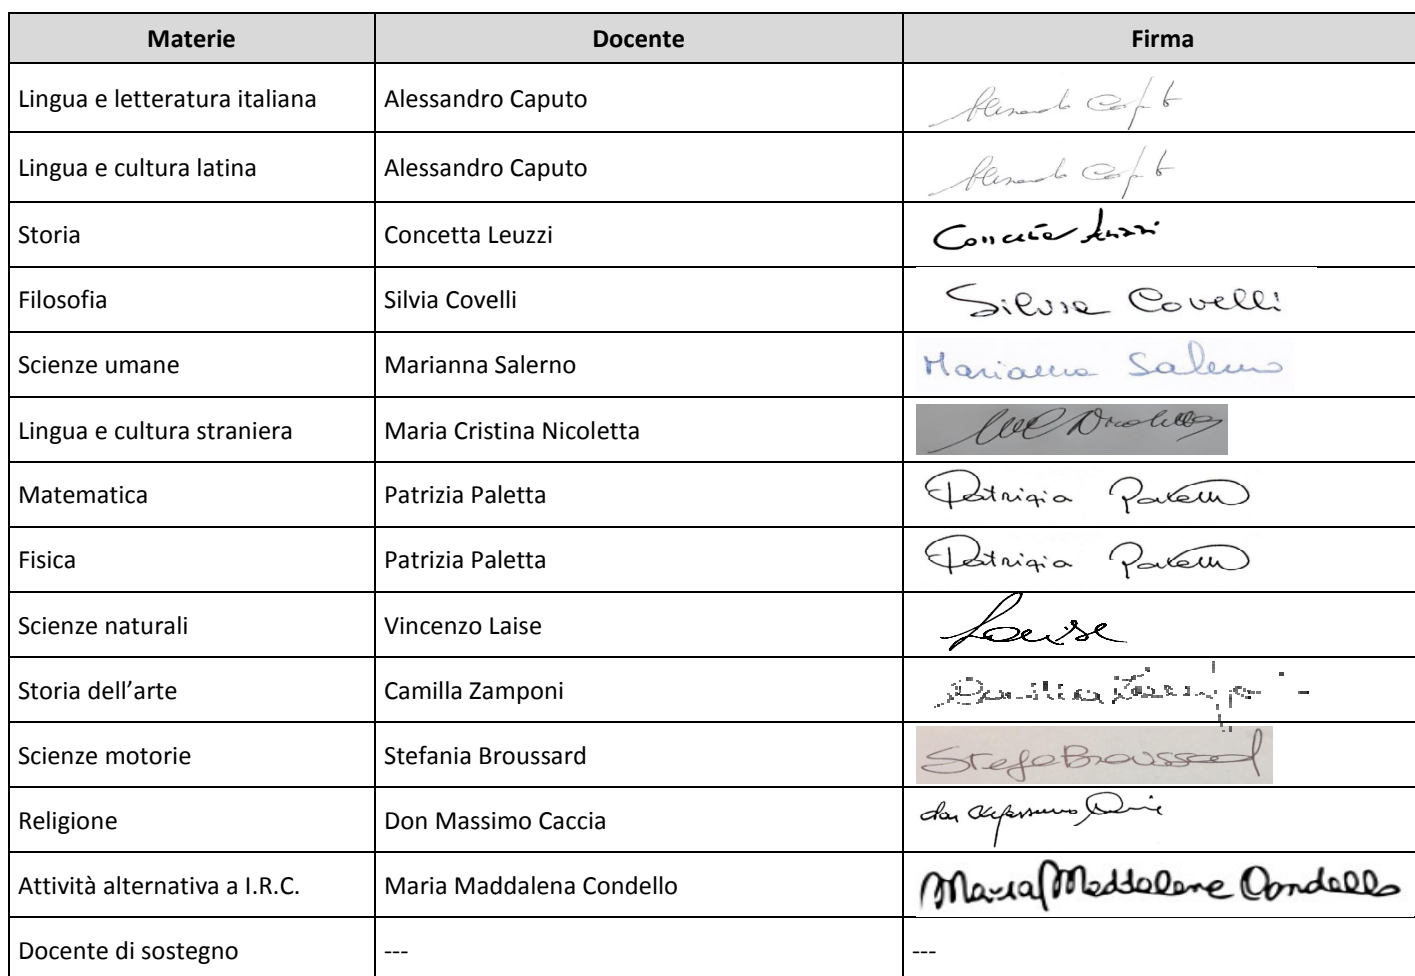 Materie Docente Firma
Lingua e letteratura italiana Alessandro Caputo
Lingua e cultura latina Alessandro Caputo
Storia Concetta Leuzzi Concetta Leuzzi
Filosofia Silvia Covelli Silvia Covelli
Scienze umane Marianna Salerno Marianna Salerno
Lingua e cultura straniera Maria Cristina Nicoletta
Matematica Patrizia Paletta Patrizia Paletta
Fisica Patrizia Paletta Patrizia Paletta
Scienze naturali Vincenzo Laise Laise
Storia dell’arte Camilla Zamponi
Scienze motorie Stefania Broussard Stefa Broussard
Religione Don Massimo Caccia
Attività alternativa a I.R.C. Maria Maddalena Condello Maria Maddalena Condello
Docente di sostegno --- ---